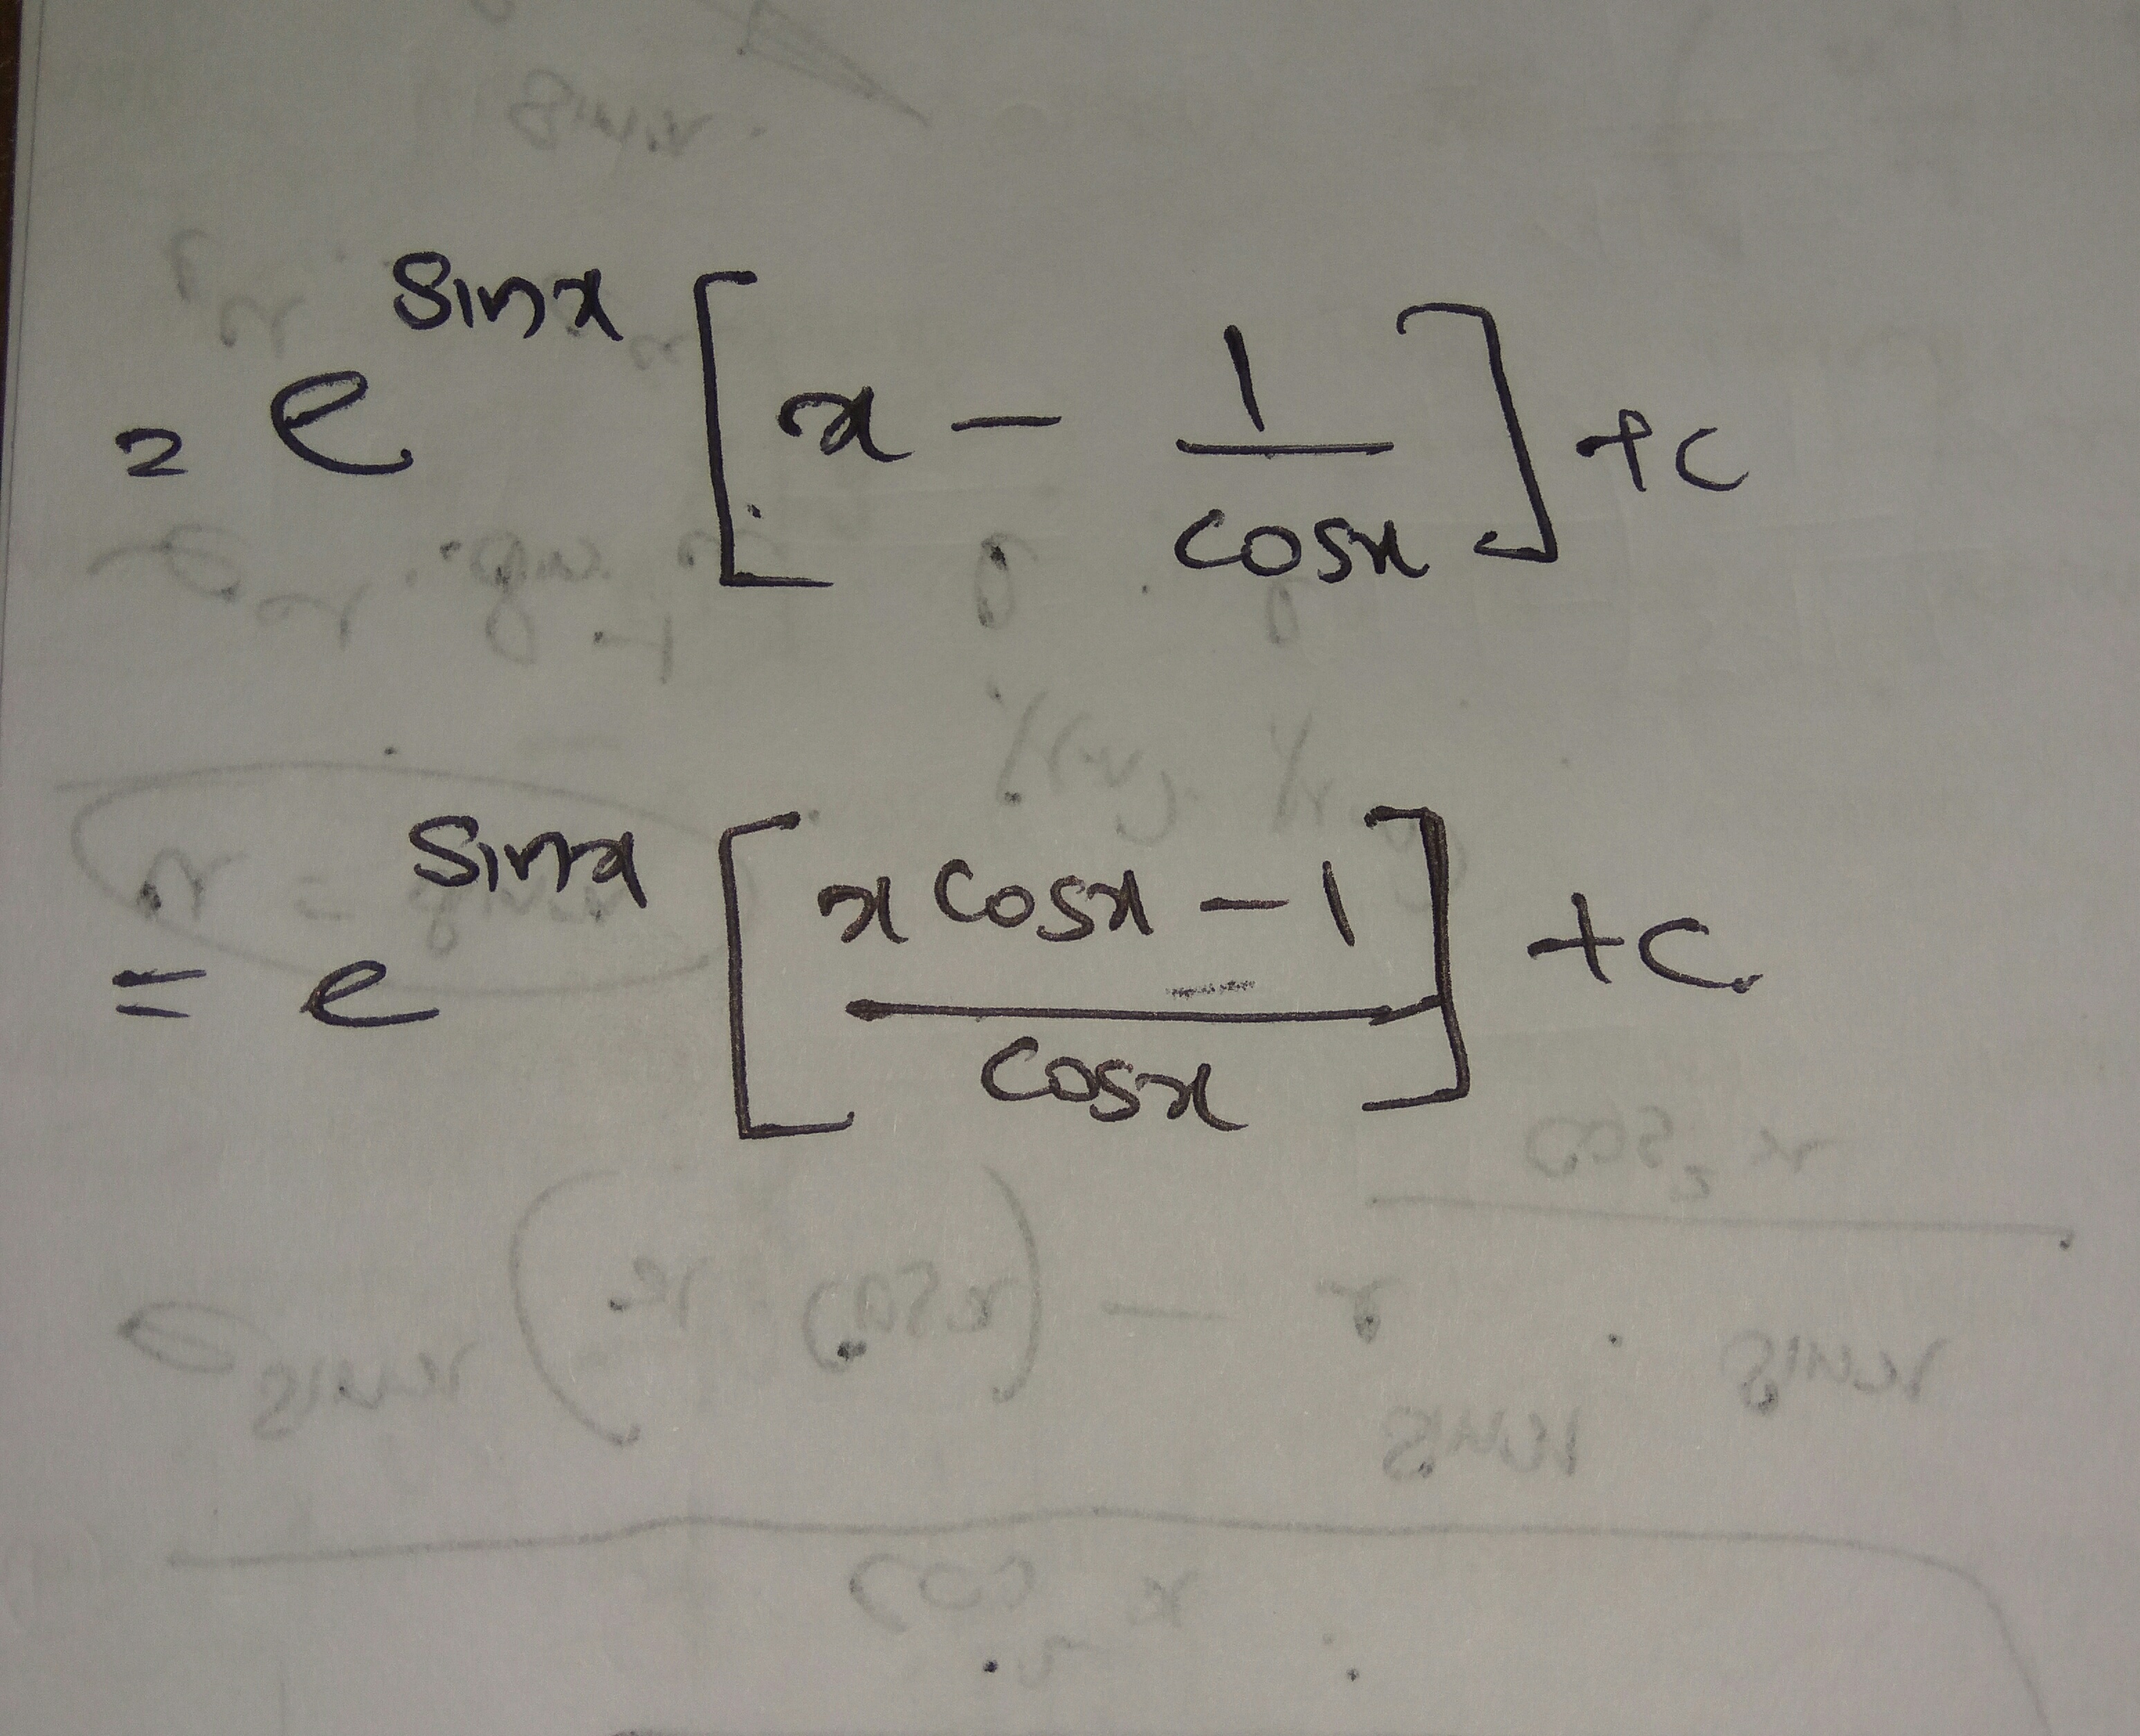 = e^sinx [x - 1/cosx] + c
= e^sinx [(x cosx - 1)/cosx] + c